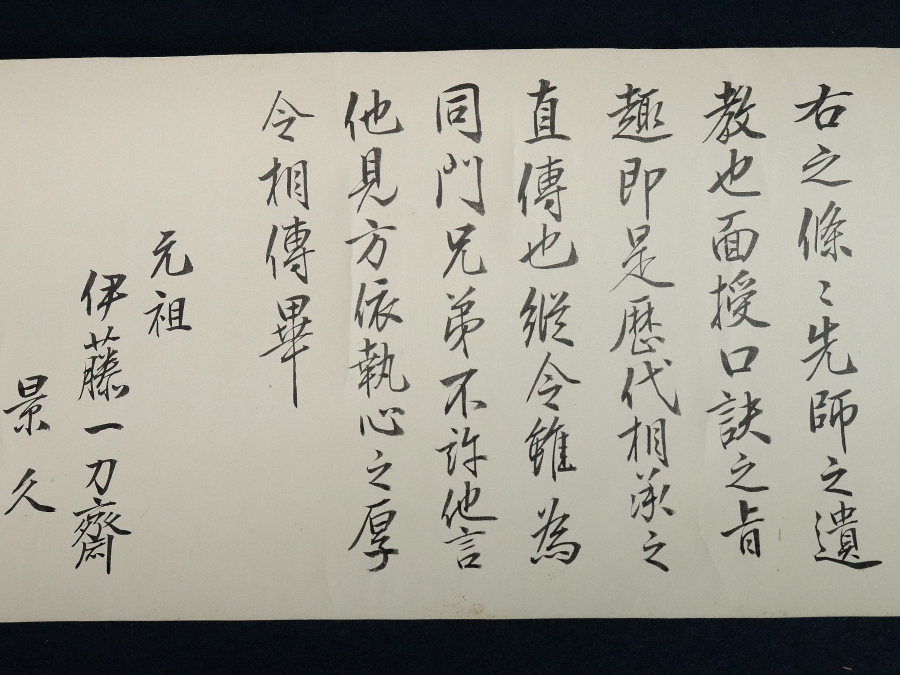 右之條〻先師之遺
教也面授口訣之旨
趣即是歴代相承之
直傳也縦令雖為
同門兄弟不許他言
他見方依執心之厚
令相傳畢
元祖
伊藤一刀齋
景久